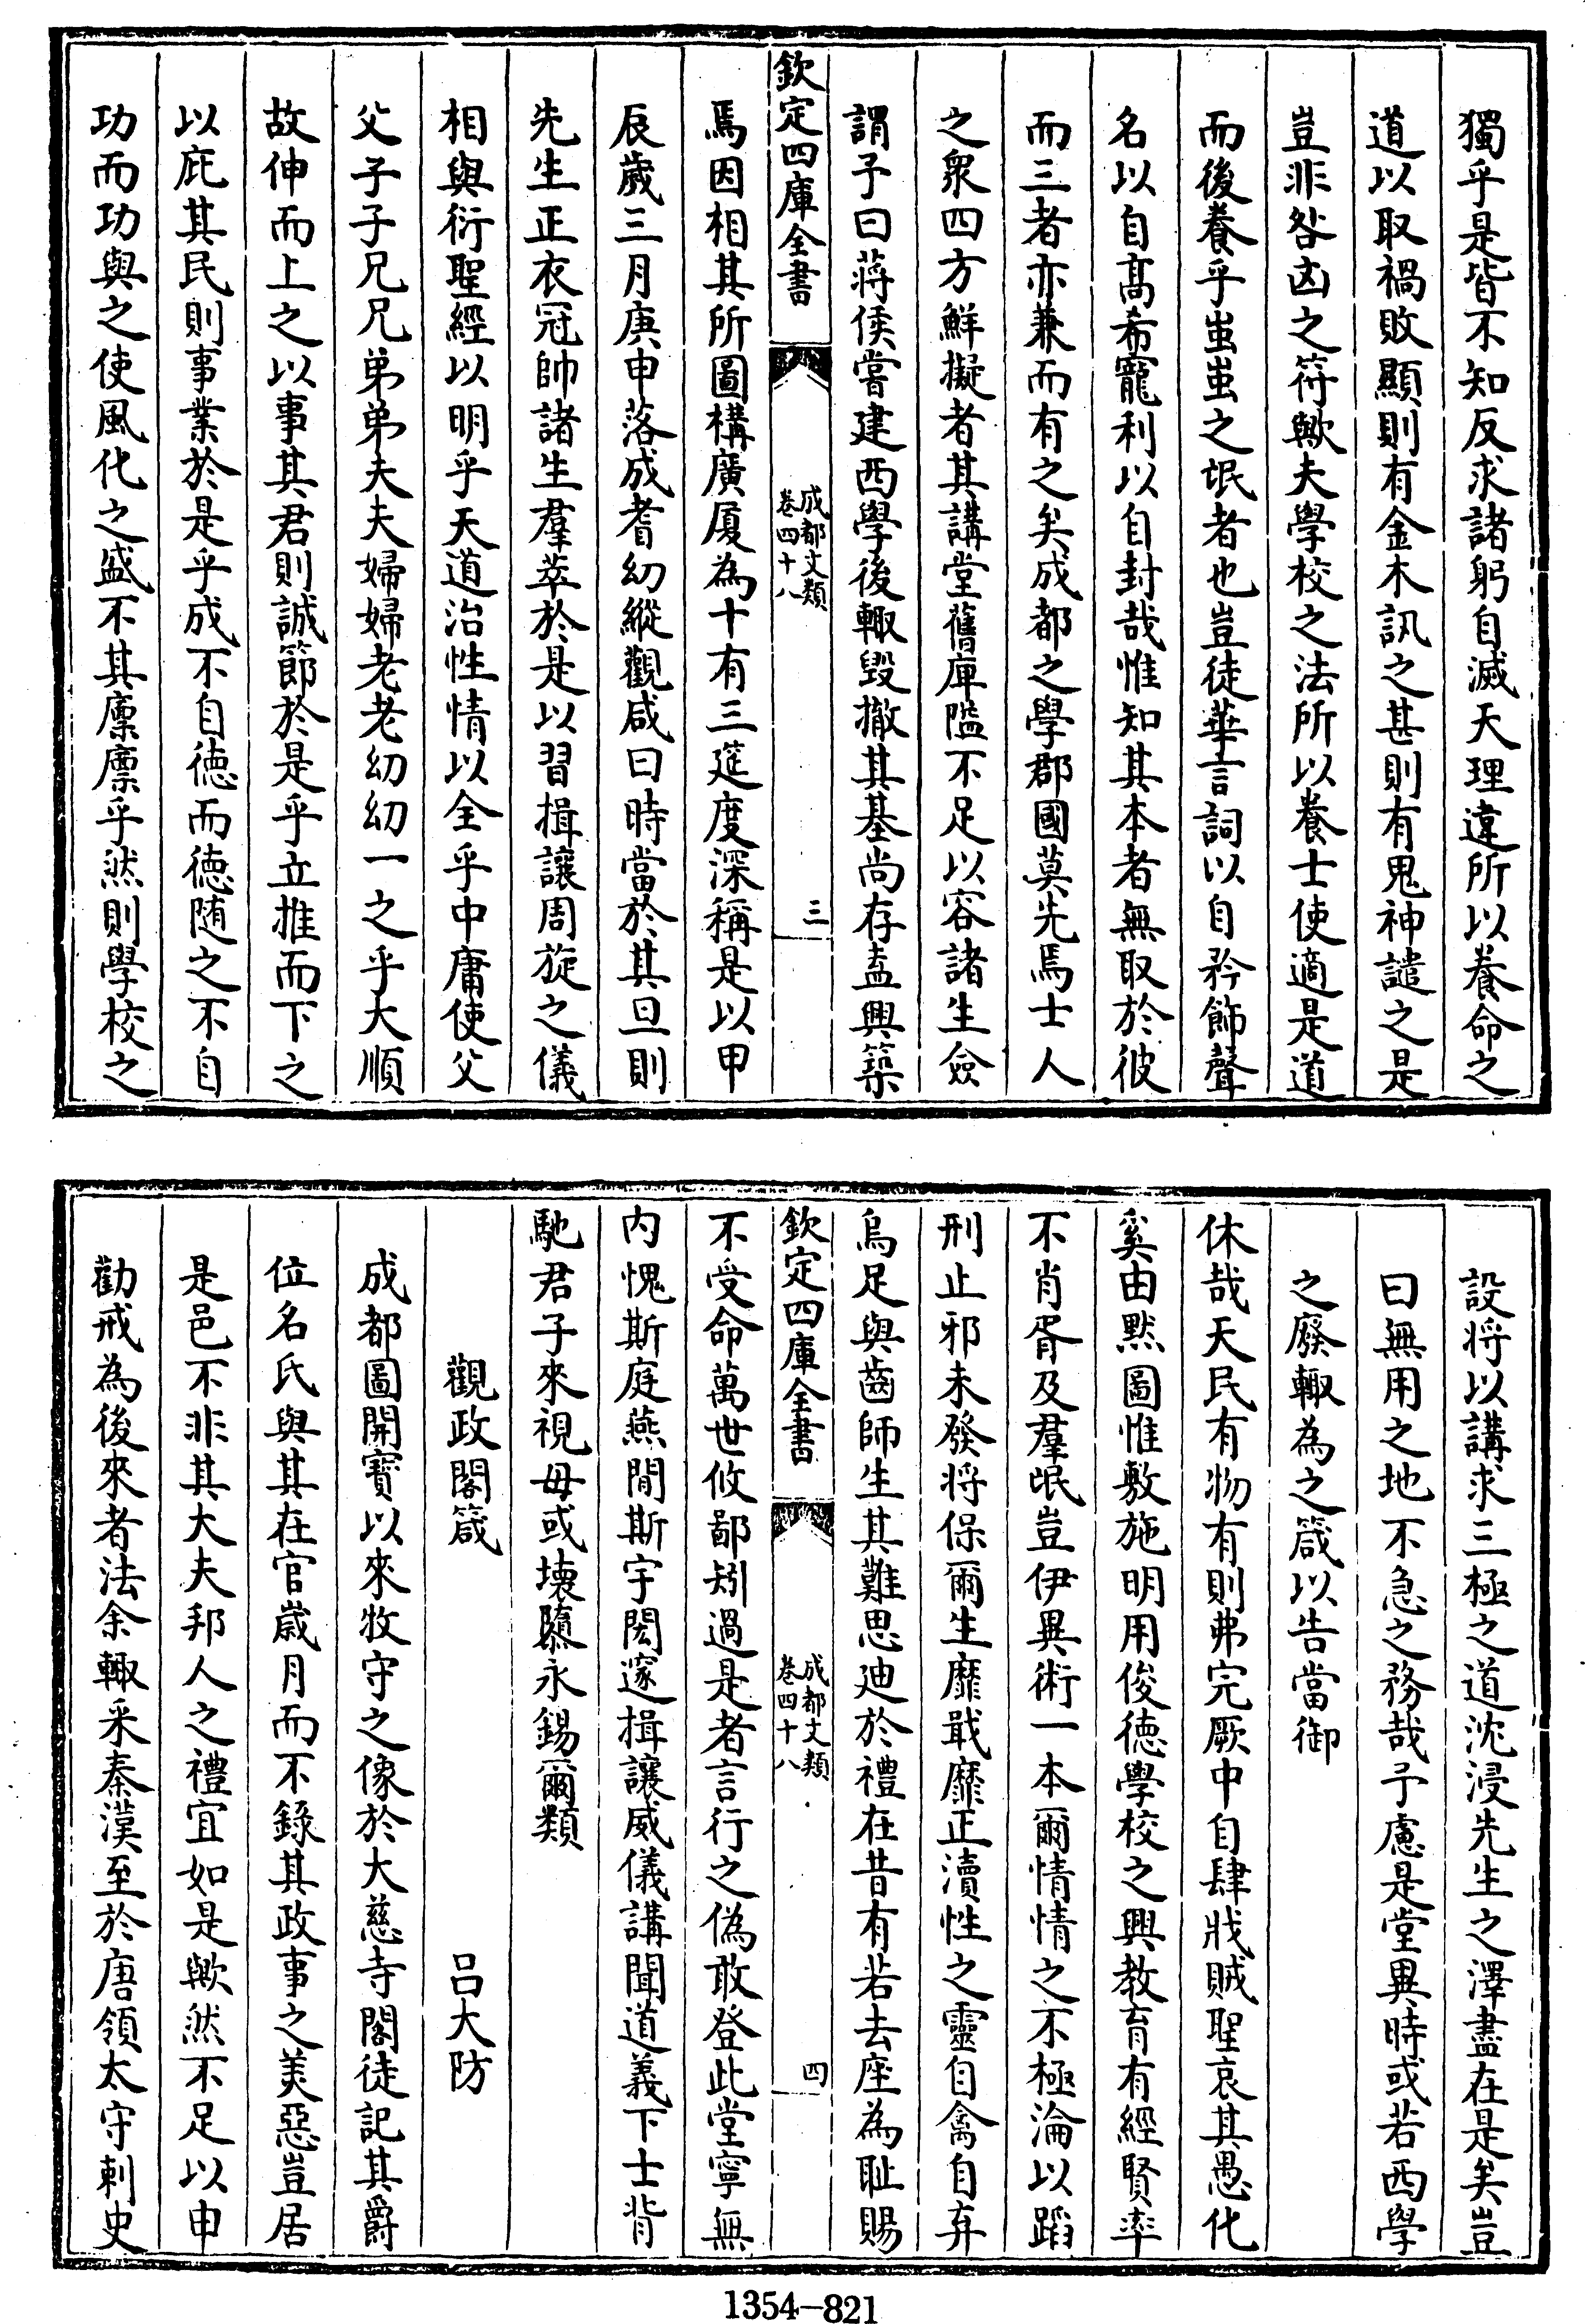 獨乎是皆不知反求諸躬自滅天理違所以養命之
道以取禍敗顯則有金木訊之甚則有鬼神譴之是
豈非咎凶之符歟夫學校之法所以養士使適是道
而後養乎蚩蚩之氓者也豈徒華言詞以自矜飾聲
名以自髙希寵利以自封哉惟知其本者無取於彼
而三者亦兼而有之矣成都之學郡國莫先焉士人
之衆四方鮮擬者其講堂舊庫隘不足以容諸生僉
謂予曰蔣侯嘗建西學後輙毀撤其基尚存盍興築
欽定四庫全書
成都文類
卷四十八
三
焉因相其所圖構廣厦為十有三筵度深稱是以甲
辰歲三月庚申落成耆幼縱觀咸曰時當於其旦則
先生正衣冠帥諸生羣萃於是以習揖讓周旋之儀
相與衍聖經以明乎天道治性情以全乎中庸使父
父子子兄兄弟弟夫夫婦婦老老幼幼一之乎大順
故伸而上之以事其君則誠節於是乎立推而下之
以庇其民則事業於是乎成不自徳而徳随之不自
功而功與之使風化之盛不其廩廩乎然則學校之
設将以講求三極之道沈浸先生之澤盡在是矣豈
曰無用之地不急之務哉予慮是堂異時或若西學
之廢輙為之箴以告當御
休哉天民有物有則弗完厥中自肆戕賊聖哀其愚化
奚由黙圖惟敷施明用俊徳學校之興教育有經賢率
不肖胥及羣氓豈伊異術一本爾情情之不極淪以蹈
刑止邪未發将保爾生靡戢靡正瀆性之靈自禽自弃
烏足與齒師生其難思廸於禮在昔有若去座為耻賜
欽定四庫全書
成都文類
卷四十八
四
不受命萬世攸鄙矧過是者言行之偽敢登此堂寧無
内愧斯庭燕閒斯宇閎邃揖讓威儀講聞道義下士背
馳君子來視毋或壊隳永錫爾類
觀政閣箴
吕大防
成都圖開寳以來牧守之像於大慈寺閣徒記其爵
位名氏與其在官嵗月而不錄其政事之美惡豈居
是邑不非其大夫邦人之禮宜如是歟然不足以申
勸戒為後來者法余輙采秦漢至於唐領太守刺史
1354-821